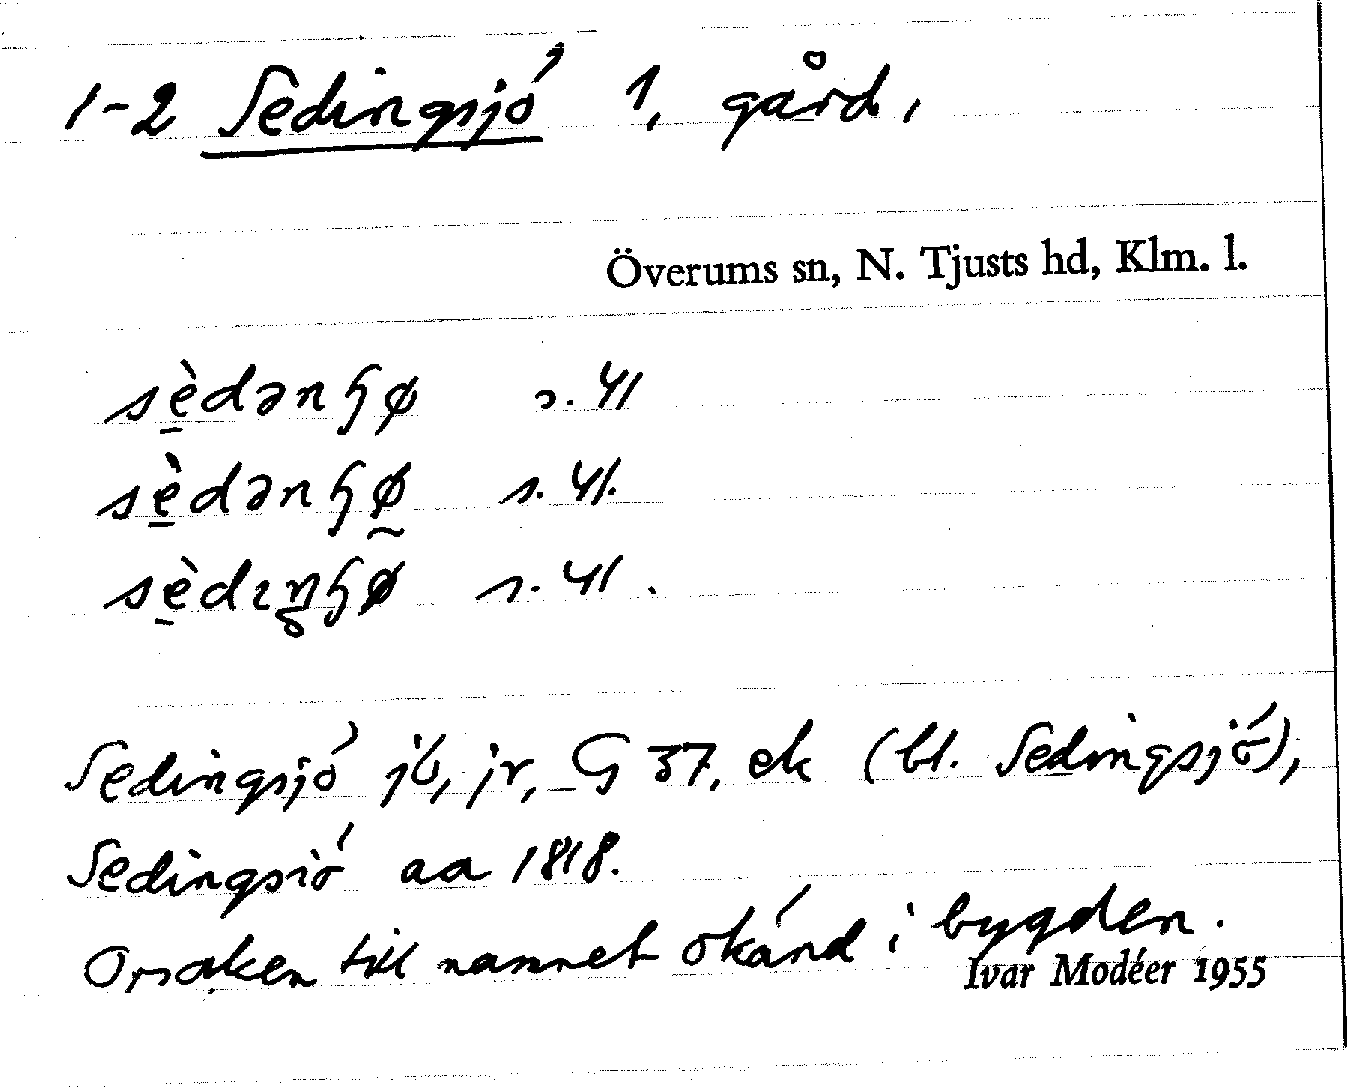 1-2 Sedingsjö 1, gård,
Överums sn, N. Tjusts hd, Klm. l.
sèdənɧø s. 41
sèdənɧø̰ s. 41.
sèdıŋɧø s. 41.
Sedingsjö jb, jr, G 37, ek (bl. Sedingsjö),
Sedingsiö aa 1818.
Orsaken till namnet okänd i bygden.
Ivar Modéer 1955